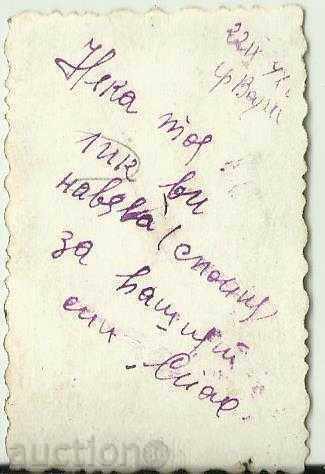 22 IX
гр Варн
Нека тоя
лик ви
навява (спомни)
за вашият
син Спас.
auction